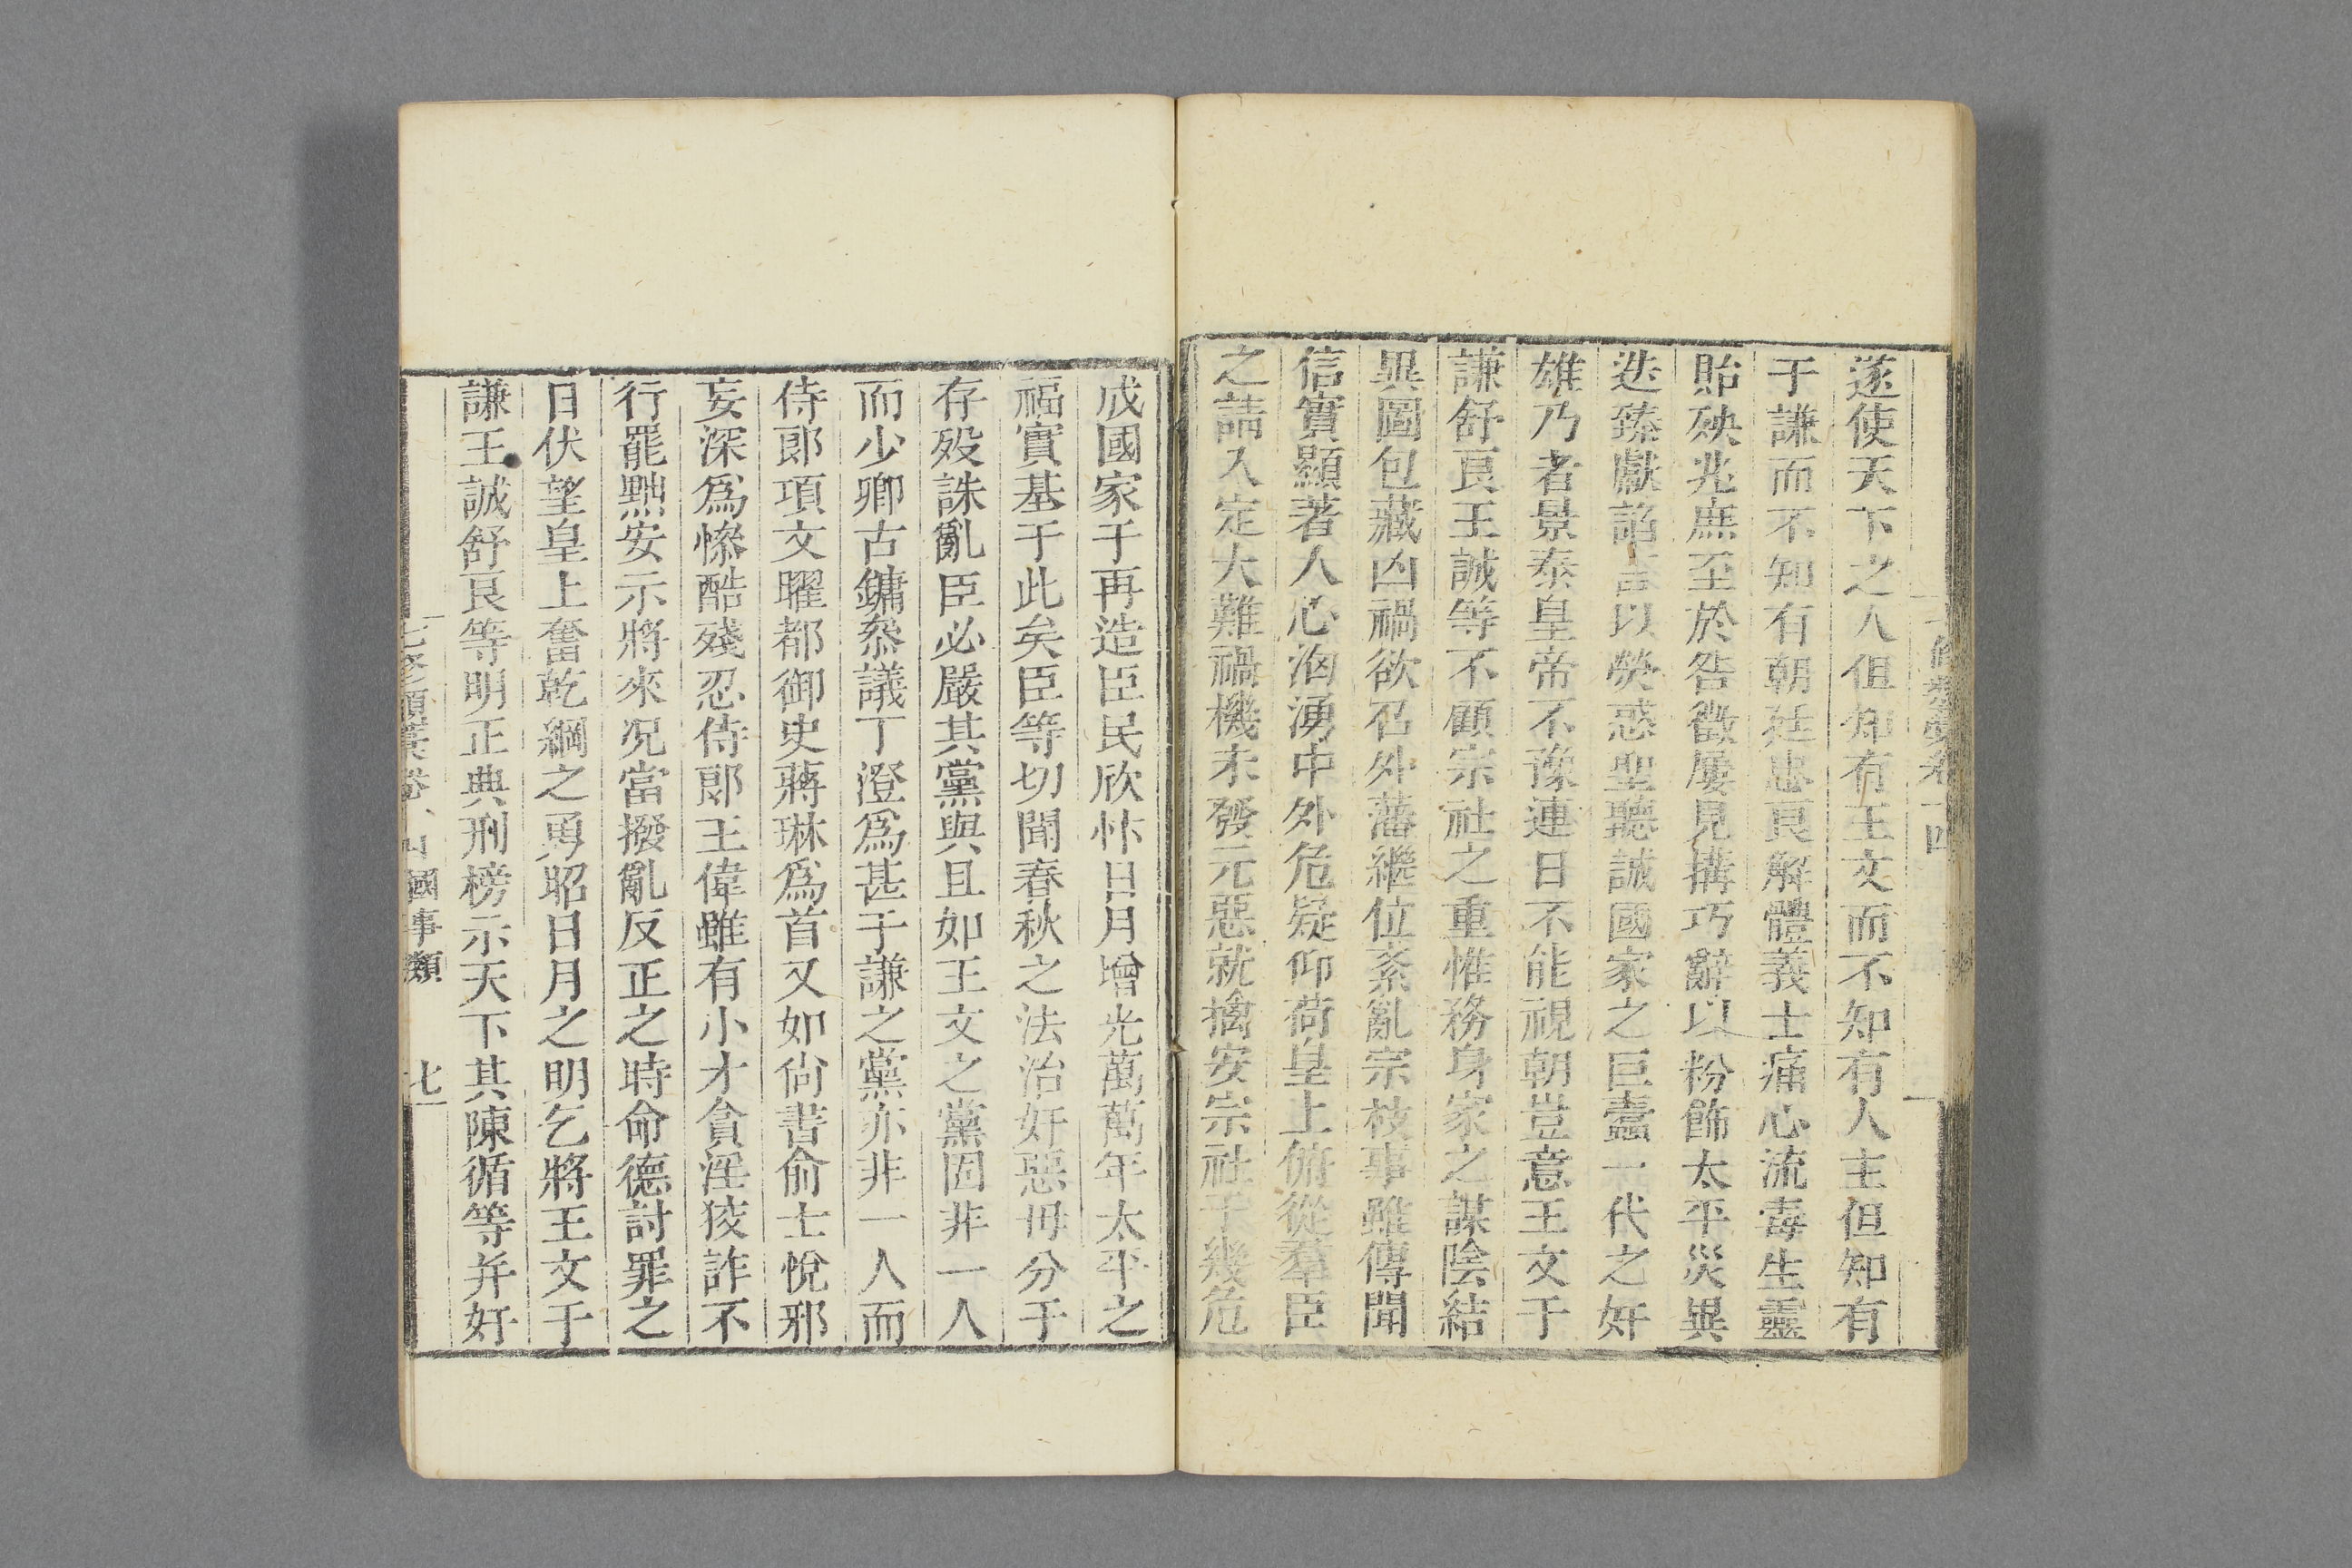 遂使天下之人但知有王文而不知有人主但知有
于謙而不知有朝廷忠良解體義士痛心流毒生靈
貽殃兆庶至於咎徵屢見搆巧辭以粉飾太平災異
迭臻獻諂言以熒惑聖聽誠國家之巨蠹一代之奸
雄乃者景泰皇帝不豫連日不能視朝豈意王文于
謙舒良王誠等不顧宗社之重惟務身家之謀陰結
異圖包藏凶禍欲召外藩繼位紊亂宗枝事雖傳聞
信實顯著人心洶湧中外危疑仰荷皇上俯從羣臣
之請入定大難禍機未發元惡就擒安宗社于幾危
成國家于再造臣民欣忭日月增光萬萬年太平之
福實基于此矣臣等切聞春秋之法治奸惡毋分于
存歿誅亂臣必嚴其黨與且如王文之黨固非一人
而少卿古鏞叅議丁澄爲甚于謙之黨亦非一人而
侍郎項文曜都御史蔣琳爲首又如尚書俞士悅邪
妄深爲慘酷殘忍侍郎王偉雖有小才貪淫狡詐不
行罷黜安示將來况當撥亂反正之時命德討罪之
日伏望皇上奮乾綱之勇昭日月之明乞將王文于
謙王誠舒良等明正典刑榜示天下其陳循等并奸
七修類藁卷 國事類 七